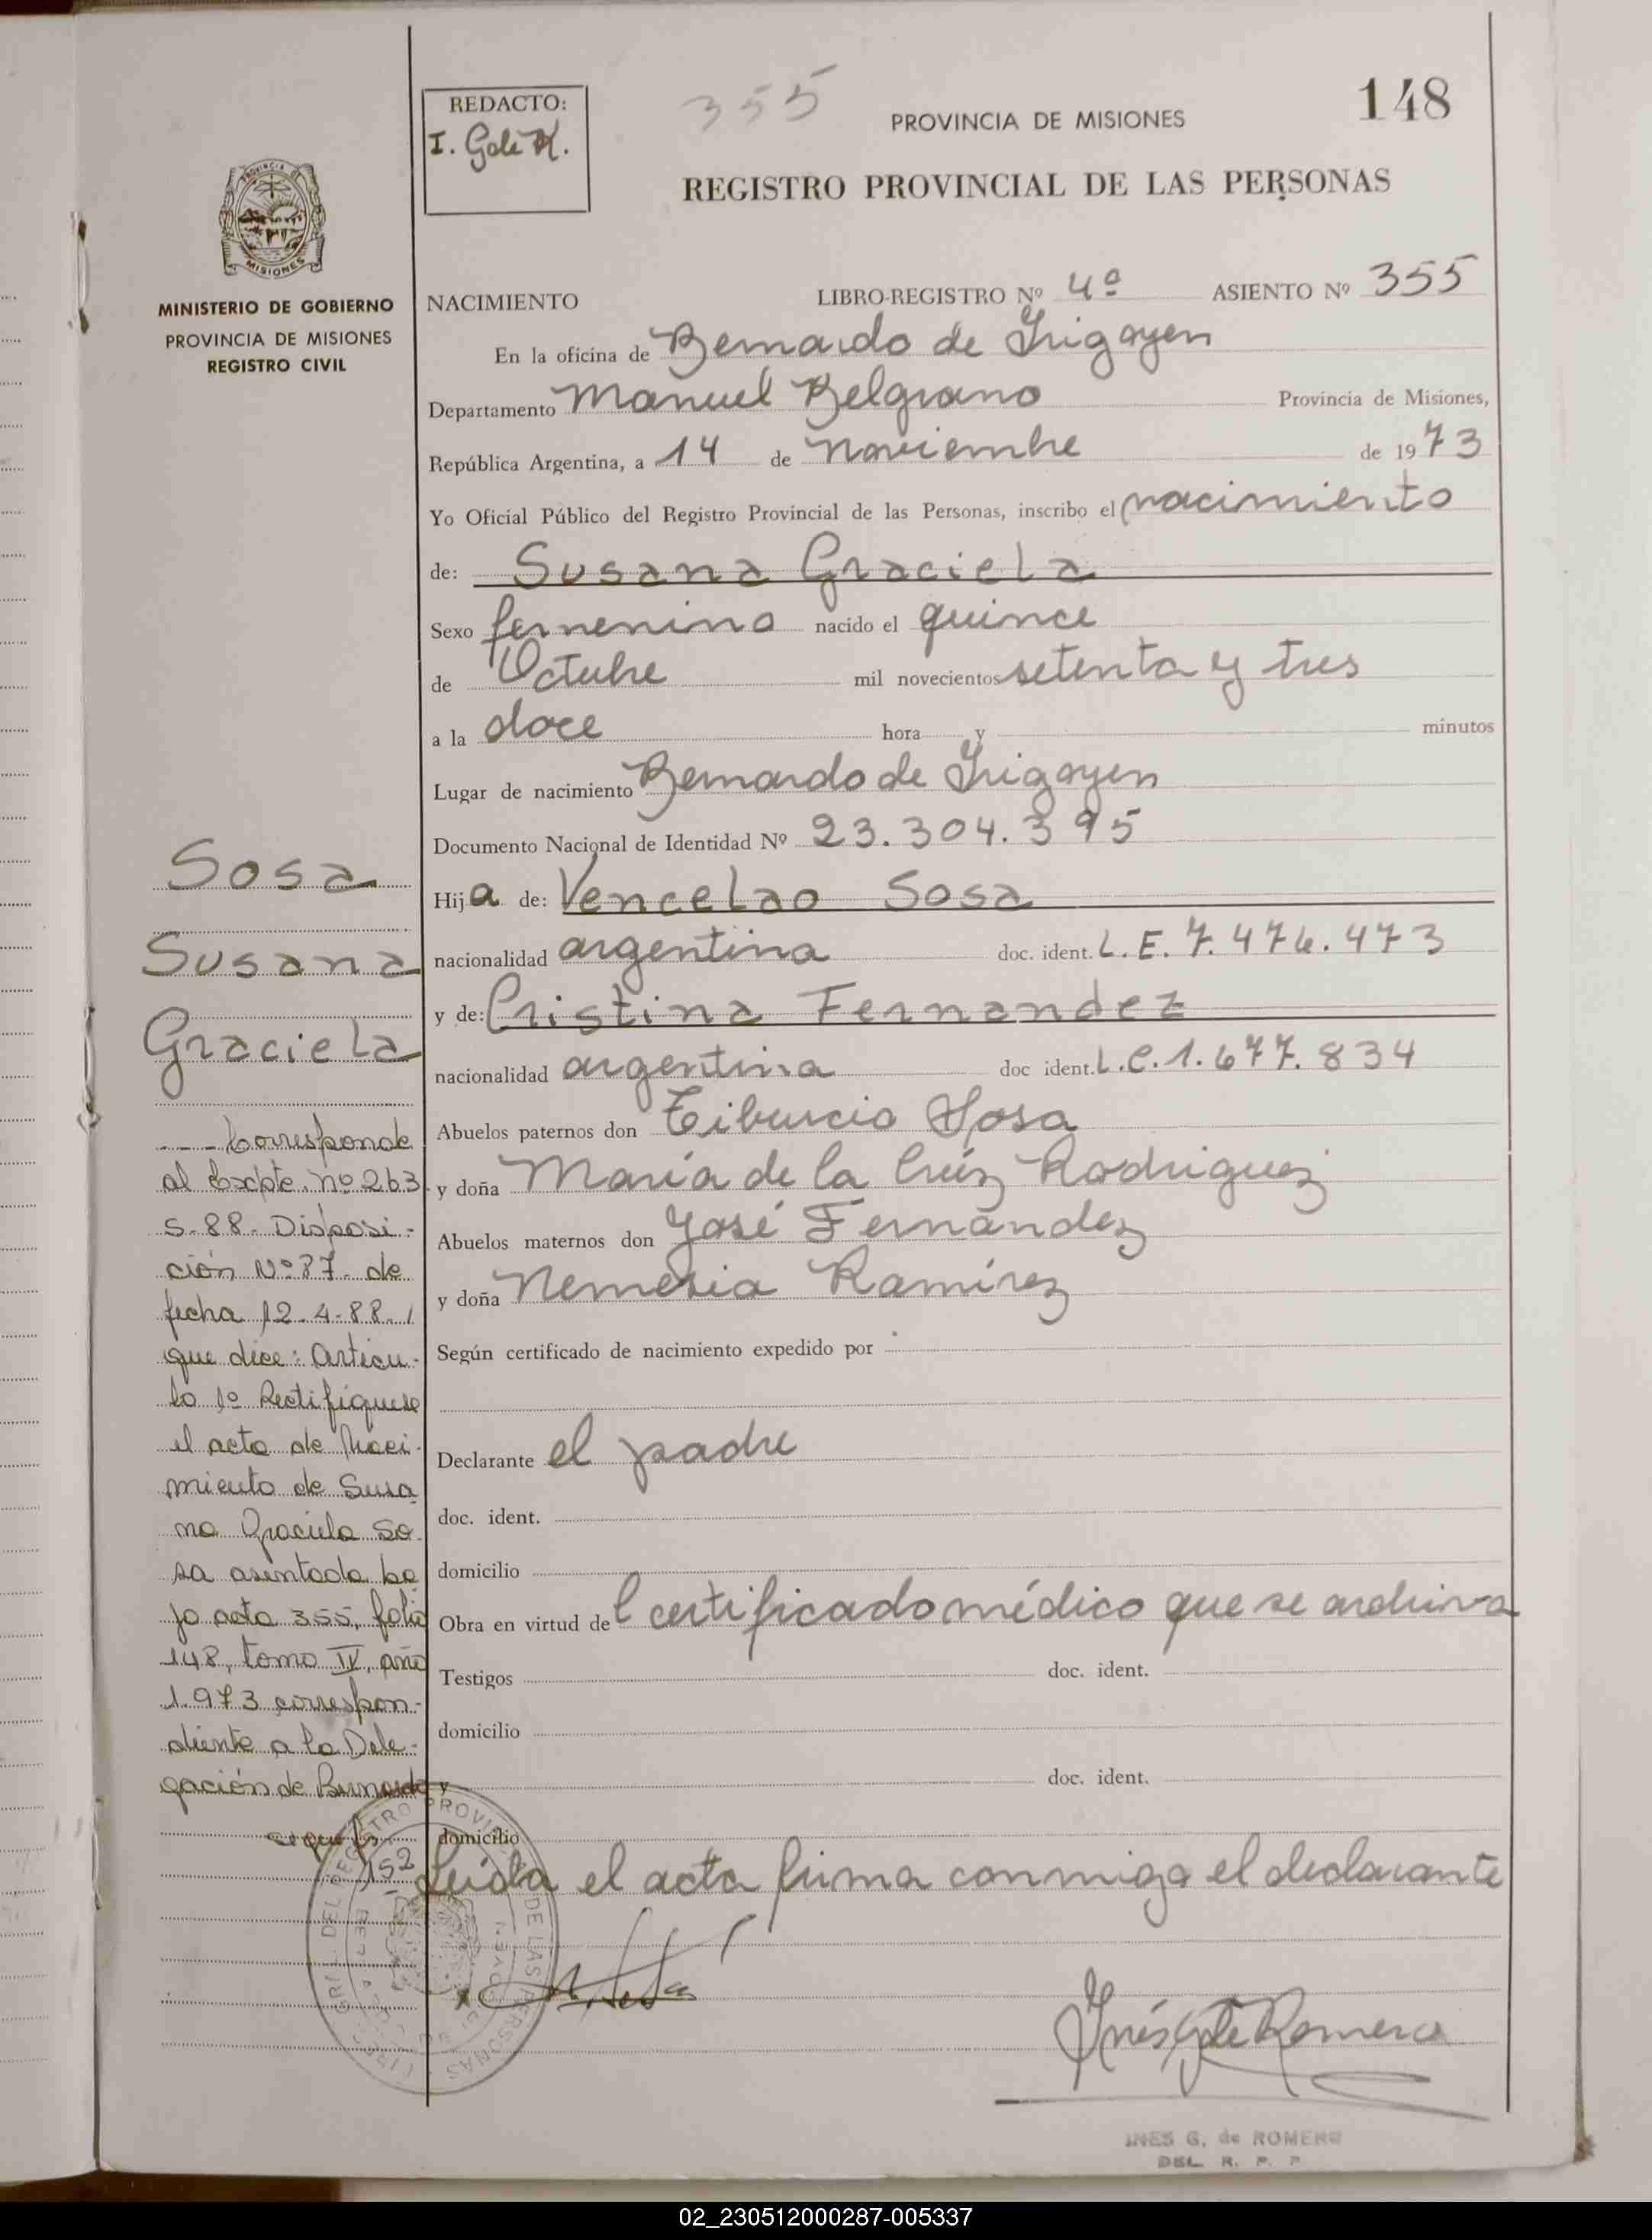 REDACTO:
I. Gole R.
355
PROVINCIA DE MISIONES
148
REGISTRO PROVINCIAL DE LAS PERSONAS
PROVINCIA DE
MISIONES
MINISTERIO DE GOBIERNO
PROVINCIA DE MISIONES
REGISTRO CIVIL
NACIMIENTO LIBRO-REGISTRO Nº 4º ASIENTO Nº 355
En la oficina de Bernardo de Irigoyen
Departamento Manuel Belgrano Provincia de Misiones,
República Argentina, a 14 de Noviembre de 1973
Yo Oficial Público del Registro Provincial de las Personas, inscribo el nacimiento
de: Susana Graciela
Sexo femenino nacido el quince
de Octubre mil novecientos setenta y tres
a la doce hora y minutos
Lugar de nacimiento Bernardo de Irigoyen
Documento Nacional de Identidad Nº 23.304.395
Hija de: Vencelao Sosa
nacionalidad argentina doc. ident. L.E. 7.474.473
y de: Cristina Fernandez
nacionalidad argentina doc ident. L.C. 1.677.834
Abuelos paternos don Tiburcio Sosa
y doña María de la Cruz Rodriguez
Abuelos maternos don José Fernández
y doña Nemesia Ramírez
Según certificado de nacimiento expedido por
Declarante el padre
doc. ident.
domicilio
Obra en virtud del certificado médico que se archiva
Testigos doc. ident.
domicilio
y doc. ident.
domicilio
Leída el acta firma conmigo el declarante
Sosa
Susana
Graciela
---Corresponde
al Excpte. nº 263
S-88- Disposi-
ción Nº 87 de
fecha 12-4-88,
que dice: Articu-
lo 1º Rectifiquese
el acta de Naci-
miento de Susa-
na Graciela So-
sa asentada ba
jo acta 355, folio
148, tomo IV, año
1.973 correspon-
diente a la Dele-
gación de Bernardo
152
REGISTRO PROVINCIAL DE LAS PERSONAS
Inés G de Romero
INES G. de ROMERO
DEL. R. P. P
02_230512000287-005337